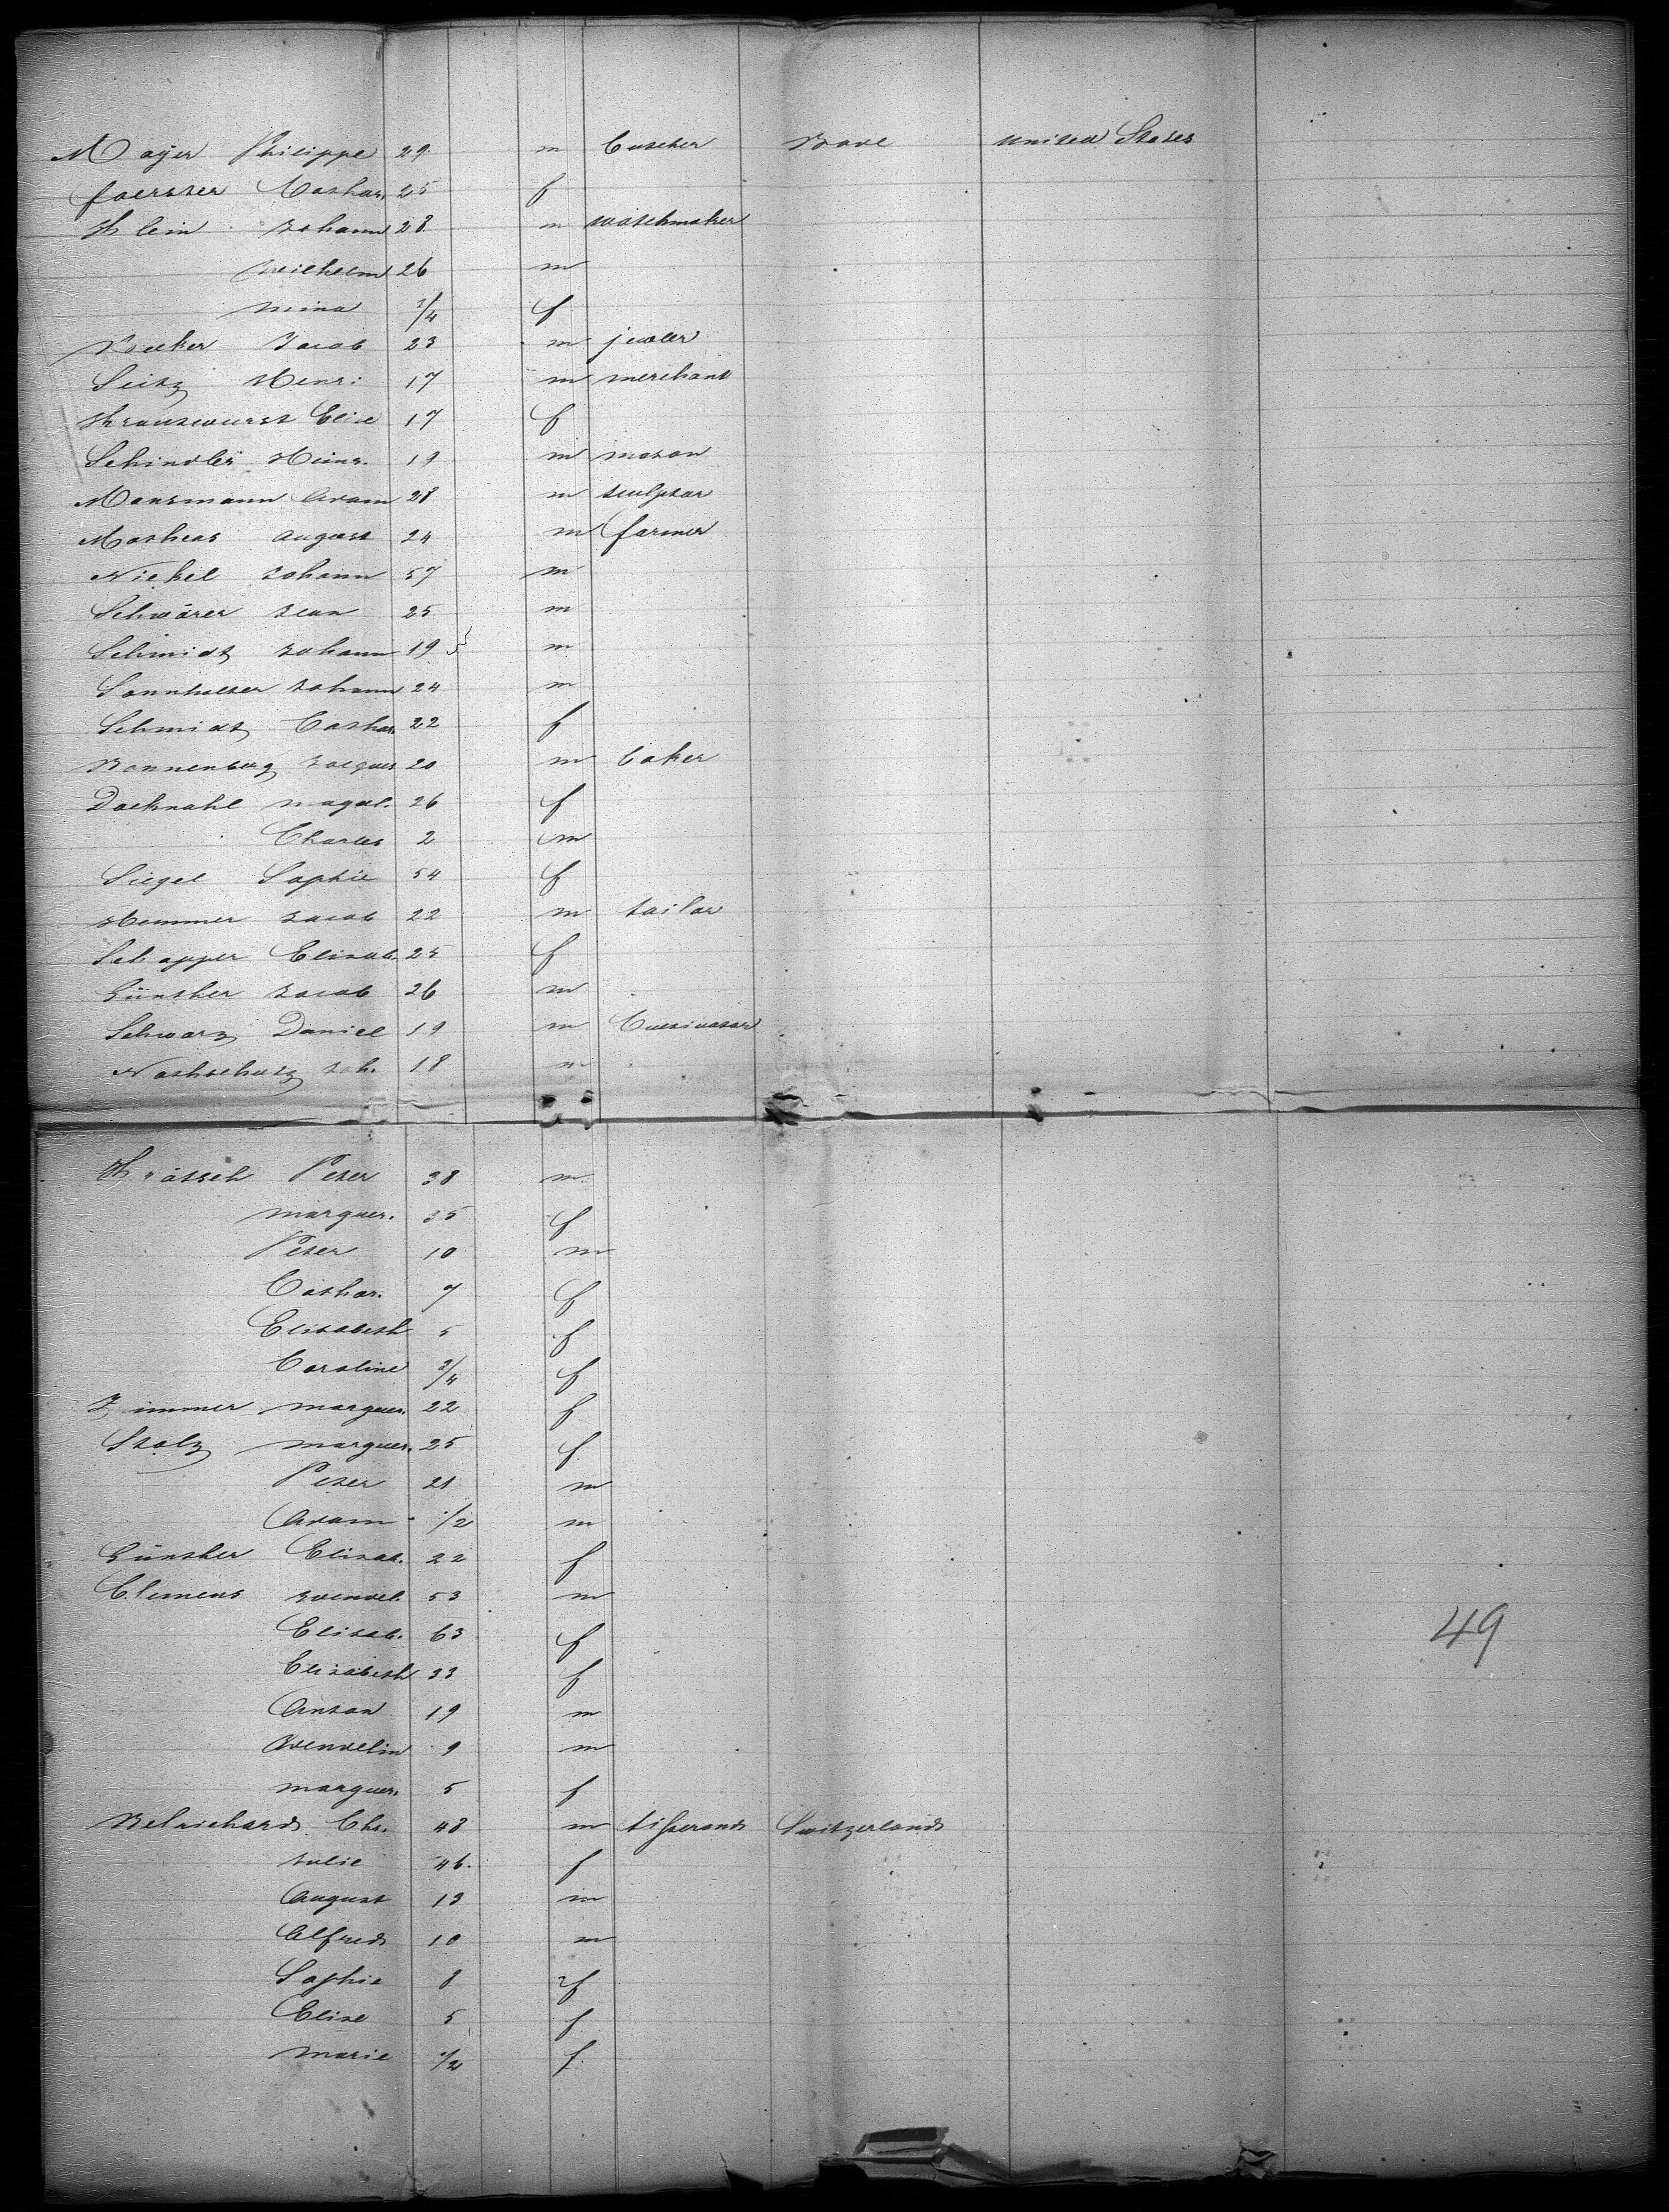 Mayer Philippe 29 m butcher Bade United States
foerster Cathar. 25 f
Klein Johann 28 m watchmaker
Wilhelm 26 m
Mina 3/4 f
Becker Jacob 23 m jewler
Seitz Henri 17 m merchant
Krautwurst Elise 17 f
Schindler Heinr. 19 m mason
Mansmann Adam 28 m sculptor
Matheas August 24 m farmer
Nickel Johann 57 m
Schwärer Jean 25 m
Schmidt Johann 19 m
Sonnhalter Johann 24 m
Schmidt Cathar. 22 f
Bonnenberg Jacques 20 m baker
Dacknahl Magdl. 26 f
Charles 2 m
Siegel Sophie 54 f
Hemmer Jacob 22 m tailor
Schapper Elisab. 25 f
Günther Jacob 26 m
Schwarz Daniel 19 m Cultivator
Joh. 18 m
Peter 38 m
Marguer. 35 f
Peter 10 m
Cathar. 7 f
Elisabeth 5 f
Caroline 3/4 f
Zimmer Marguer. 22 f
Stolz Marguer. 25 f
Peter 21 m
Adam 1/2 m
Günther Elisab. 22 f
Clemens Wendel. 53 m
Elisab. 63 f
Elisabeth 33 f
Anton 19 m
Wendelin 9 m
Marguer. 5 f
49
Belrichard Chs. 48 m tisserand Switzerland
Julie 46. f
August 13 m
Alfred 10 m
Sophie 8 f
Elise 5 f
Marie 1/2 f.